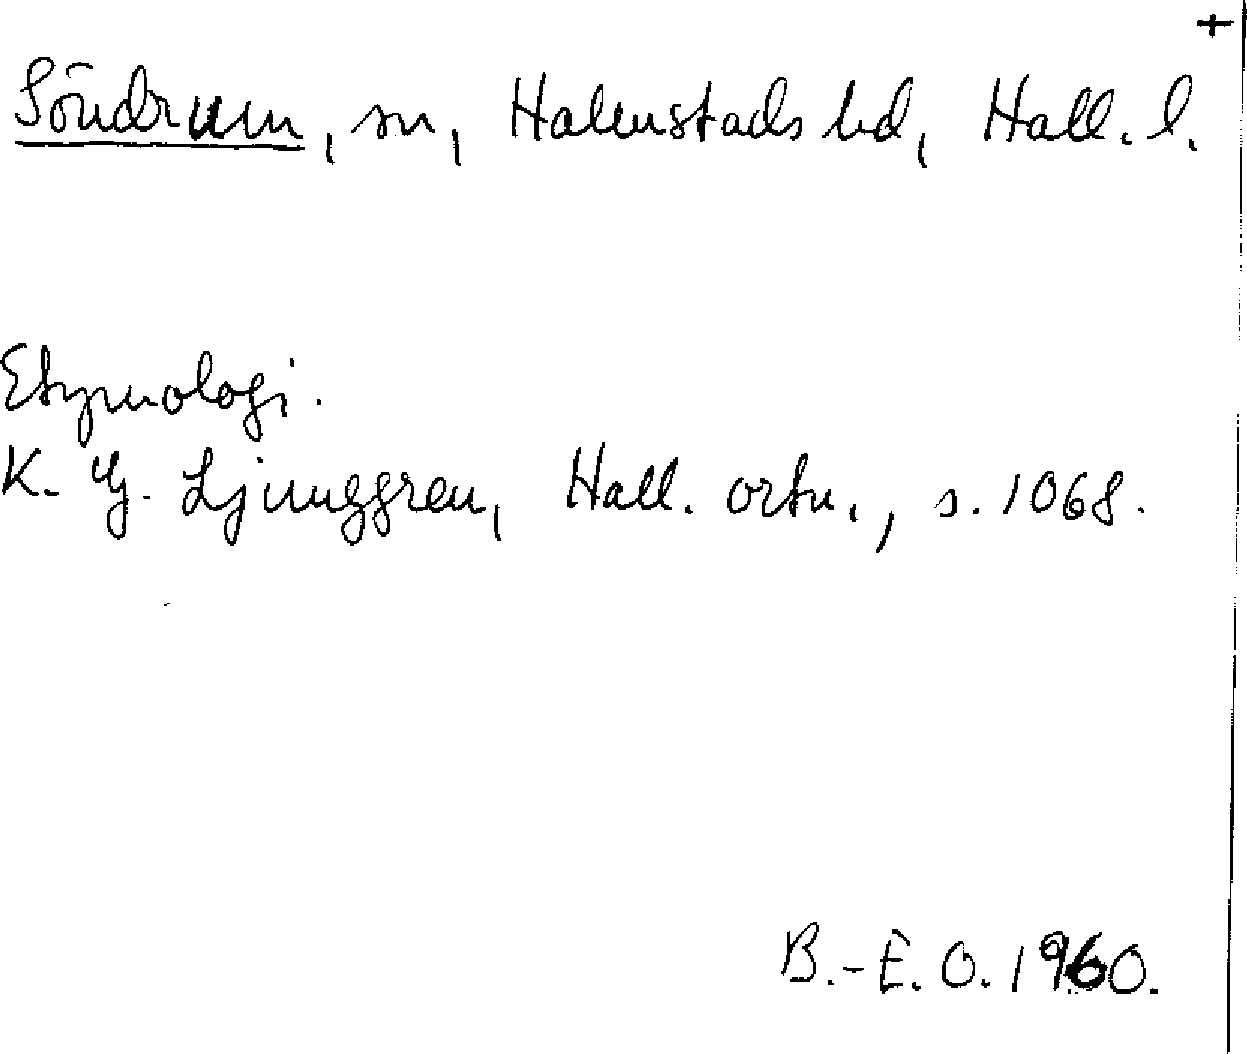 +
Söndrum, sn, Halmstads hd, Hall. l.
Etymologi.
K. G. Ljunggren, Hall. ortn., s. 1068.
B.-E. O. 1960.